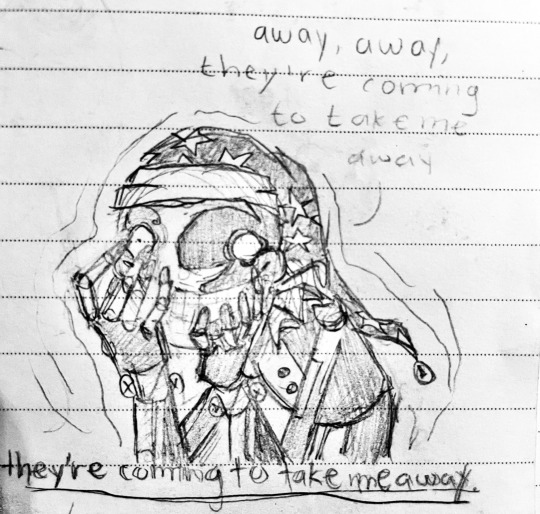 away, away,
they're coming
to take me
away
they're coming to take me away.